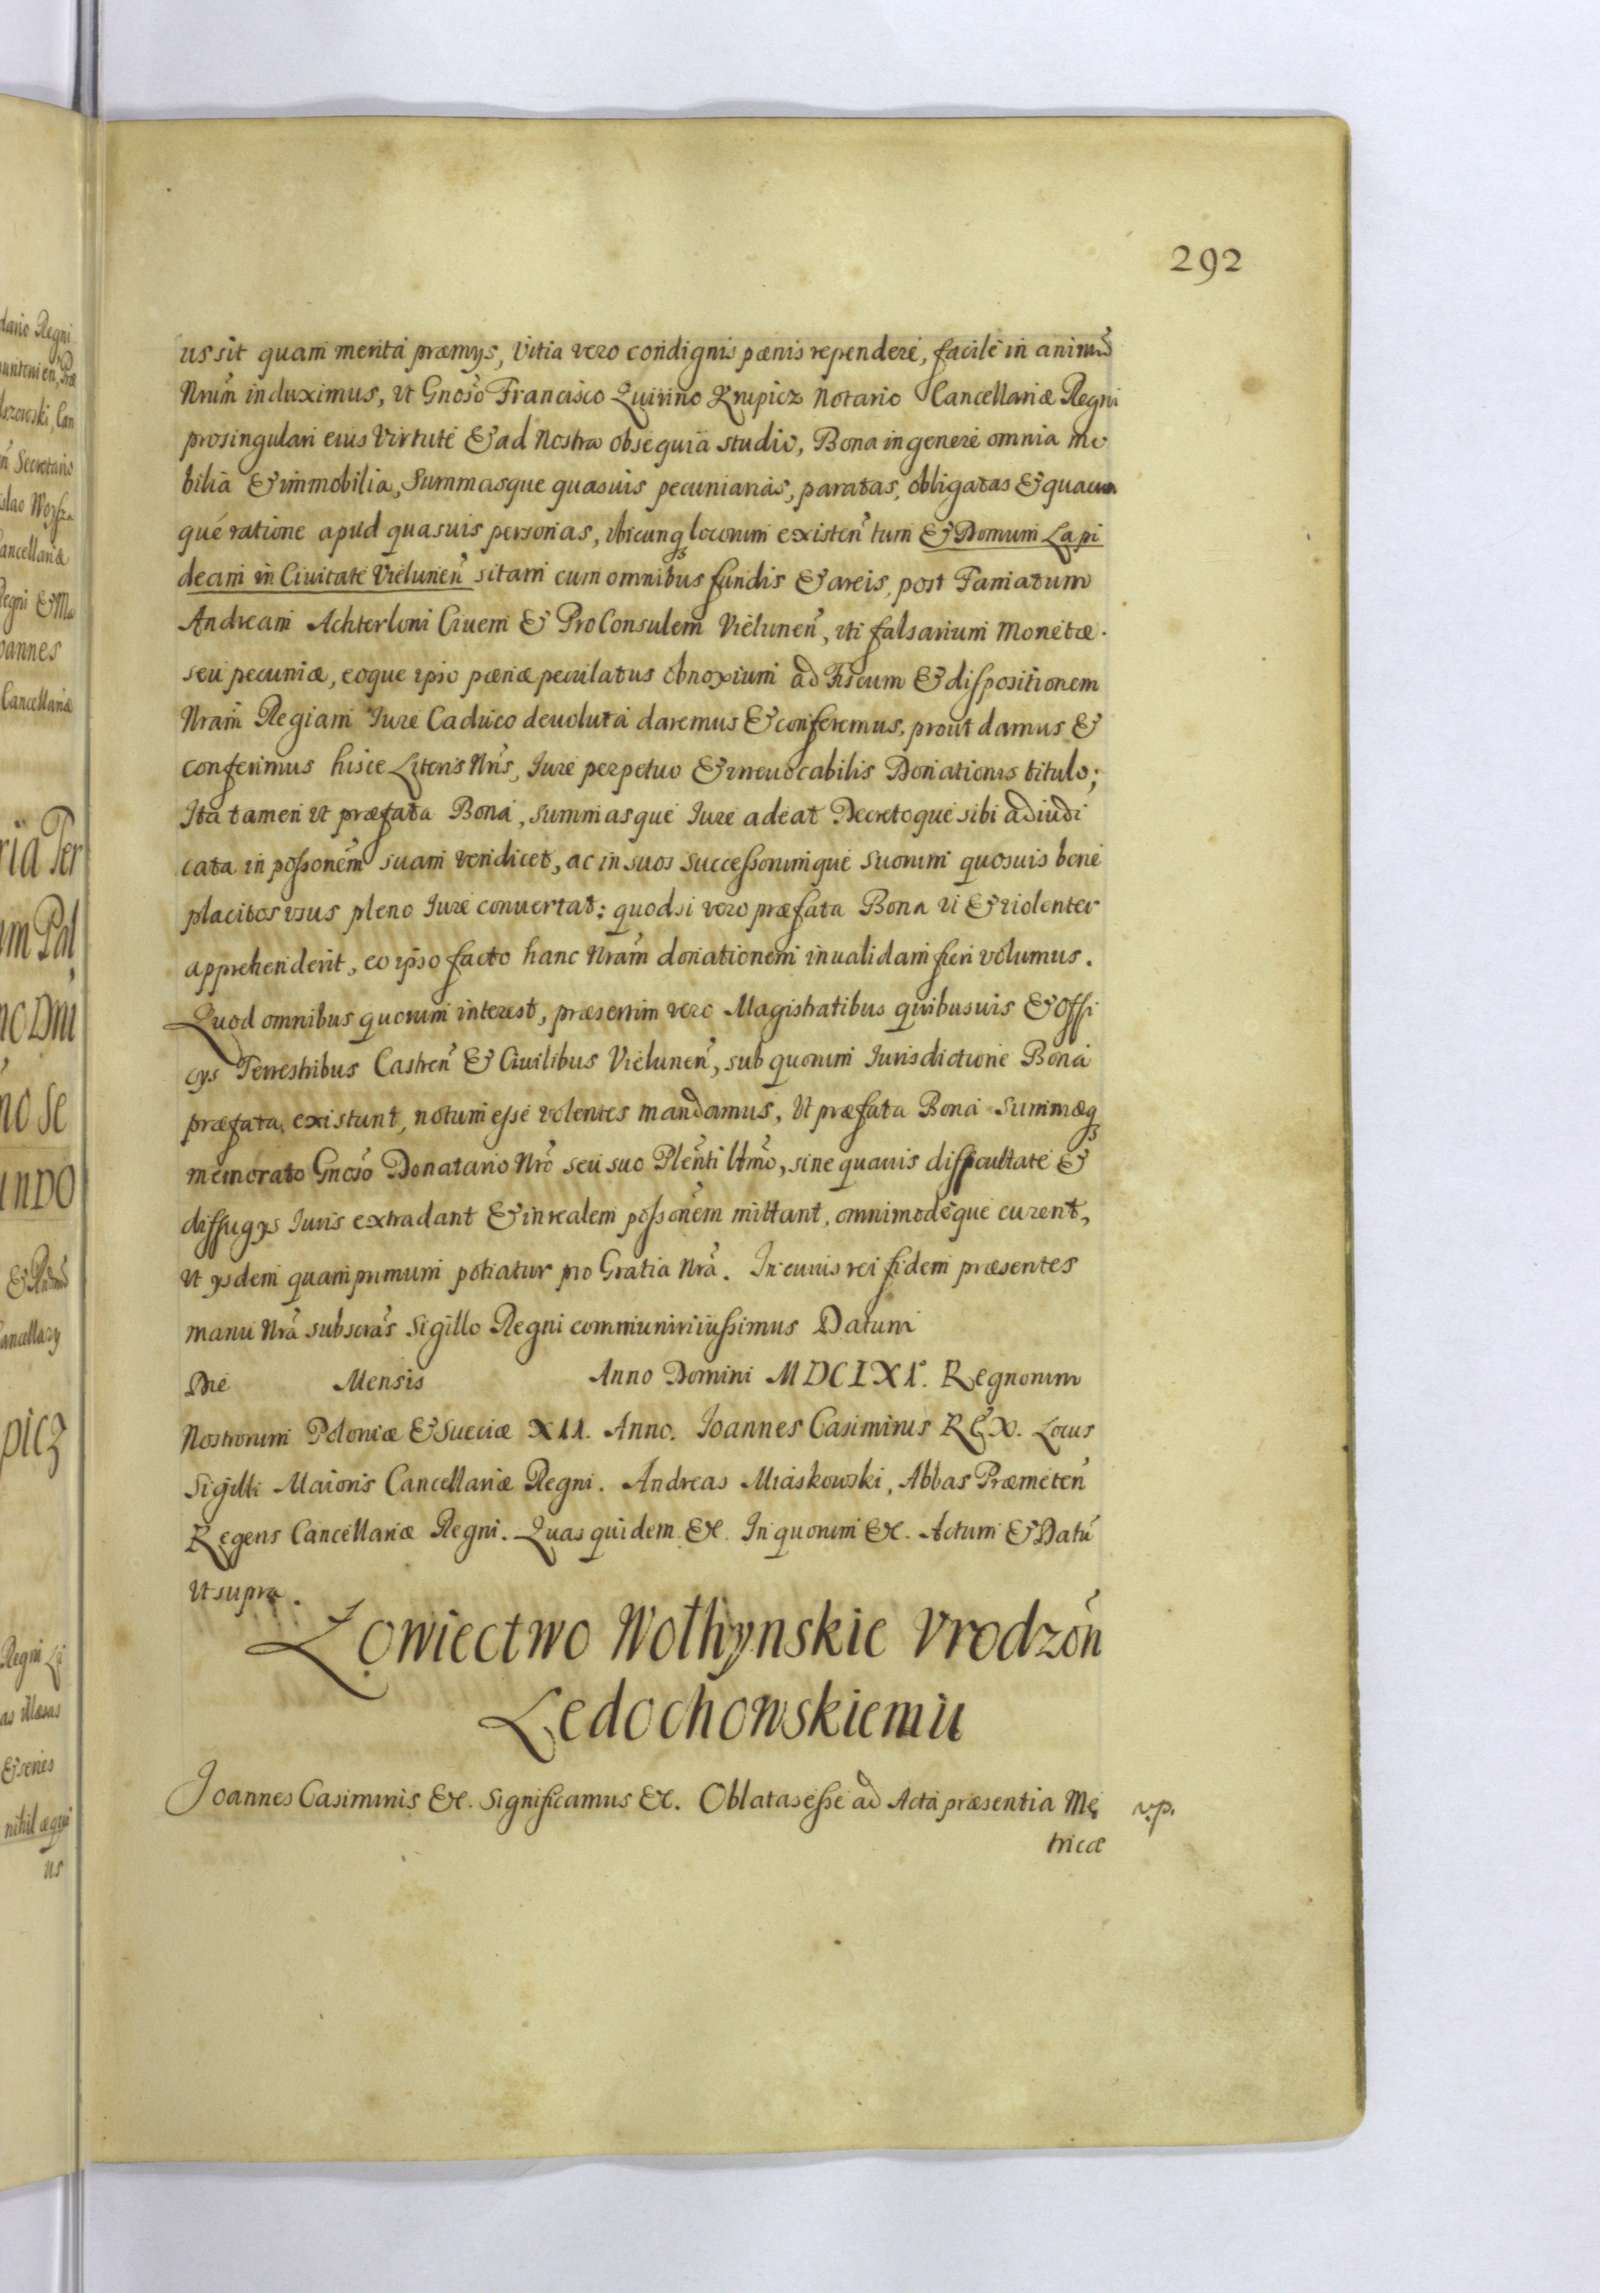 292
us sit quam merita præmys, Vitia vero condignis pænis rependere, facile in animũ
Nrum̃ induximus, ut Gnoso Francisco Quirino Krupicz Notario Cancellariæ Regni
prosingulari eius Virtute & ad Nostra obsequia studio, Bona in genere omnia mo
bilia & immobilia, Summasque quasuis pecuniarias, paratas, obligatas & quacun
que ratione apud quasuis personas, ubicunq locorum existen̄tum & Domum Lapi
deam in Ciuitate Vielunen̄ sitam cum omnibus fundis & areis, post Famatum
Andream Achterloni Ciuem & ProConsulem Vielunen̄, uti falsarium Monetæ
seu pecuniæ, eoque ipso pænæ peculatus obnoxium ad Fiscum & dispositionem
Nram̃ Regiam Iure Caduco deuoluta daremus & conferemus, prout damus &
conferimus hisce Literis Nris̃, Iure perpetuo & irreuocabilis Donationis titulo;
Ita tamen ut præfata Bona, summasque Iure adeat Decretoque sibi adiudi
cata in possonem̃ suam vendicet, ac in suos Successorumque Suorum quosuis bene
placitos usus pleno Iure conuertat: quodsi vero præfata Bona vi & violenter
apprehenderit, eo ipso facto hanc Nram̃ donationem inualidam fieri volumus.
Quod omnibus quorum interest, præsertim vero Magistratibus quibusuis & Offi
cys Terrestribus Castren̄ & Ciuilibus Vielunen̄, sub quorum Iurisdictione Bona
præfata existunt, notum esse volentes mandamus, Ut præfata Bona Summæq
memorato Gnoso Donatario Nro seu suo Plenti Ltmo, sine quauis difficultate &
diffugys Iuris extradant & in realem possonem̃ mittant, omnimodeque curent,
ut ysdem quamprimum potiatur pro Gratia Nra. In cuius rei fidem præsentes
manu Nra subscras̃ Sigillo Regni communiri iussimus Datum
Die Mensis Anno Domini MDCLX1°. Regnorum
Nostrorum Poloniæ & Sueciæ X11. Anno. Ioannes Casimirus REX. Locus
Sigilli Maioris Cancellariæ Regni. Andreas Miaskowski, Abbas Præmeten̄
Regens Cancellariæ Regni. Quas quidem &c. In quorum &c. Actum & Datũ
ut supra.
Łowiectwo Wołhynskie Vrodzon̄
Ledochowskiemu
Joannes Casimirus &c. Significamus &c. Oblatas esse ad Acta præsentia Me
vp.
tricæ